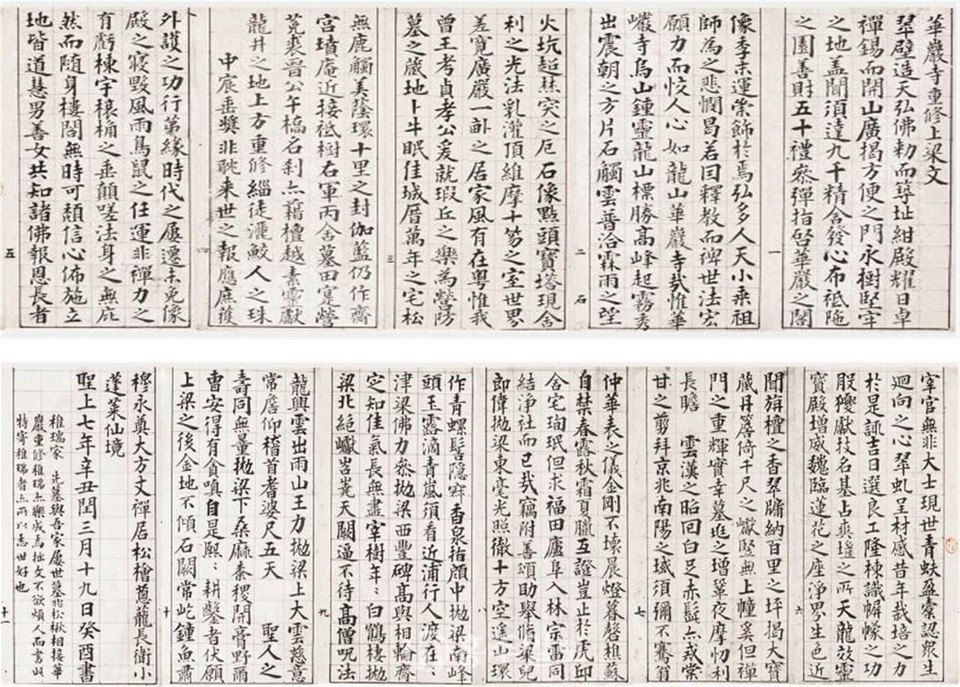 華嚴寺重修上梁文
翠壁造天弘佛勅而尋址紺殿耀日卓
禪錫而開山廣揭方便之門永樹堅牢
之地盖聞須達九千精舍發心布祗陁
之園善財五十禮參彈指啓華嚴之閣
一
像季末運崇飾於焉弘多人天小乘祖
師為之悲憫曷若曰釋教而裨世法宏
願力而恔人心如龍山華嚴寺哉惟華
嚴寺烏山鍾靈龍山標勝高峰起霧秀
出震朝之方片石觸雲普洽霖雨之望
二 石
火坑超焚突之厄石像點頭寶塔現舍
利之光法乳灌頂維摩十笏之室世界
差寬廣嚴一畝之居家風有在粤惟我
曾王考貞孝公爰就瑕丘之樂為營防
墓之藏地卜牛眠佳城厝萬年之宅松
三
無鹿觸美蔭環十里之封伽藍仍作齋
宮墳庵近接祗樹右軍丙舍墓田寔營
菟裘晉公午橋石刹亦藉檀越素靈獻
龍井之地上方重修緇徒灑鮫人之珠
中宸垂奬非耽來世之報應庶獲
四
外護之功行第緣時代之屢遷未免像
殿之寢毀風雨鳥鼠之任運非禪力之
有虧棟宇榱桷之垂顛嗟法身之無庇
然而随身樓閣無時可頽信心佈施立
地皆道慧男善女共知諸佛報恩長者
五
宰官無非大士現世青蚨盈橐認衆生
廻向之心翠虬呈材感昔年栽培之力
於是諏吉日選良工隆棟識幈幪之功
般獶獻技石基占爽塏之所天龍效靈
寶殿增威巍臨蓮花之座淨界生色近
六
聞旃檀之香翠牖納百里之坪揭大寶
藏丹簷倚千尺之巘竪無上幢奚但禪
門之重輝實幸墓道之增鞏夜摩忉利
長瞻 雲漢之昭回白足赤髭亦或常
甘之剪拜京兆南陽之域須彌不騫翁
七
仲華表之儀金剛不壞晨燈暮磬樵蘇
自禁春露秋霜夏臘互證豈止於虎邱
舍宅珣珉但求福田廬阜入林宗雷同
結淨社而已哉竊附善頌助舉脩梁兒
郎偉抛梁東毫光照徹十方空遙山環
八
作青螺髻隱寐香泉抬顔中抛梁南峰
頭玉露滴青嵐須看近浦行人渡在〻
津梁佛力叅抛梁西豐碑高與相輪齊
定知佳氣長無盡宰樹年〻白鶴棲抛
梁北絶巘岧嶤天關逼不待高僧呪法
九
龍興雲出雨山王力抛梁上大雲慈意
常居仰稽首耆婆尺五天 聖人之
壽同無量抛梁下桑麻黍稷開膏野爾
曹安得有貪嗔自是熙〻耕鑿者伏願
上梁之後金地不傾石闕常屹鍾魚肅
十
穆永奠大方丈禪居松檜葱蘢長衛小
蓬萊仙境
聖上七年辛丑閏三月十九日癸酉書
稚瑞家 先墓與吾家屢世墓兆松楸相接華
嚴重修稚瑞亦樂成為拙文不欲煩人而書此
特寄稚瑞者亦所以志世好也
十一